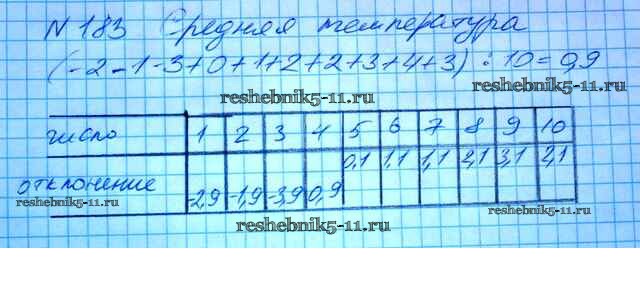 N 183 Средняя температура
(-2-1-3+0+1+2+2+3+4+3) : 10 = 0,9
reshebnik5-11.ru
reshebnik5-11.ru
число 1 2 3 4 5 6 7 8 9 10
отклонение -2,9 -1,9 -3,9 0,9 0,1 1,1 1,1 2,1 3,1 2,1
reshebnik5-11.ru
reshebnik5-11.ru
reshebnik5-11.ru